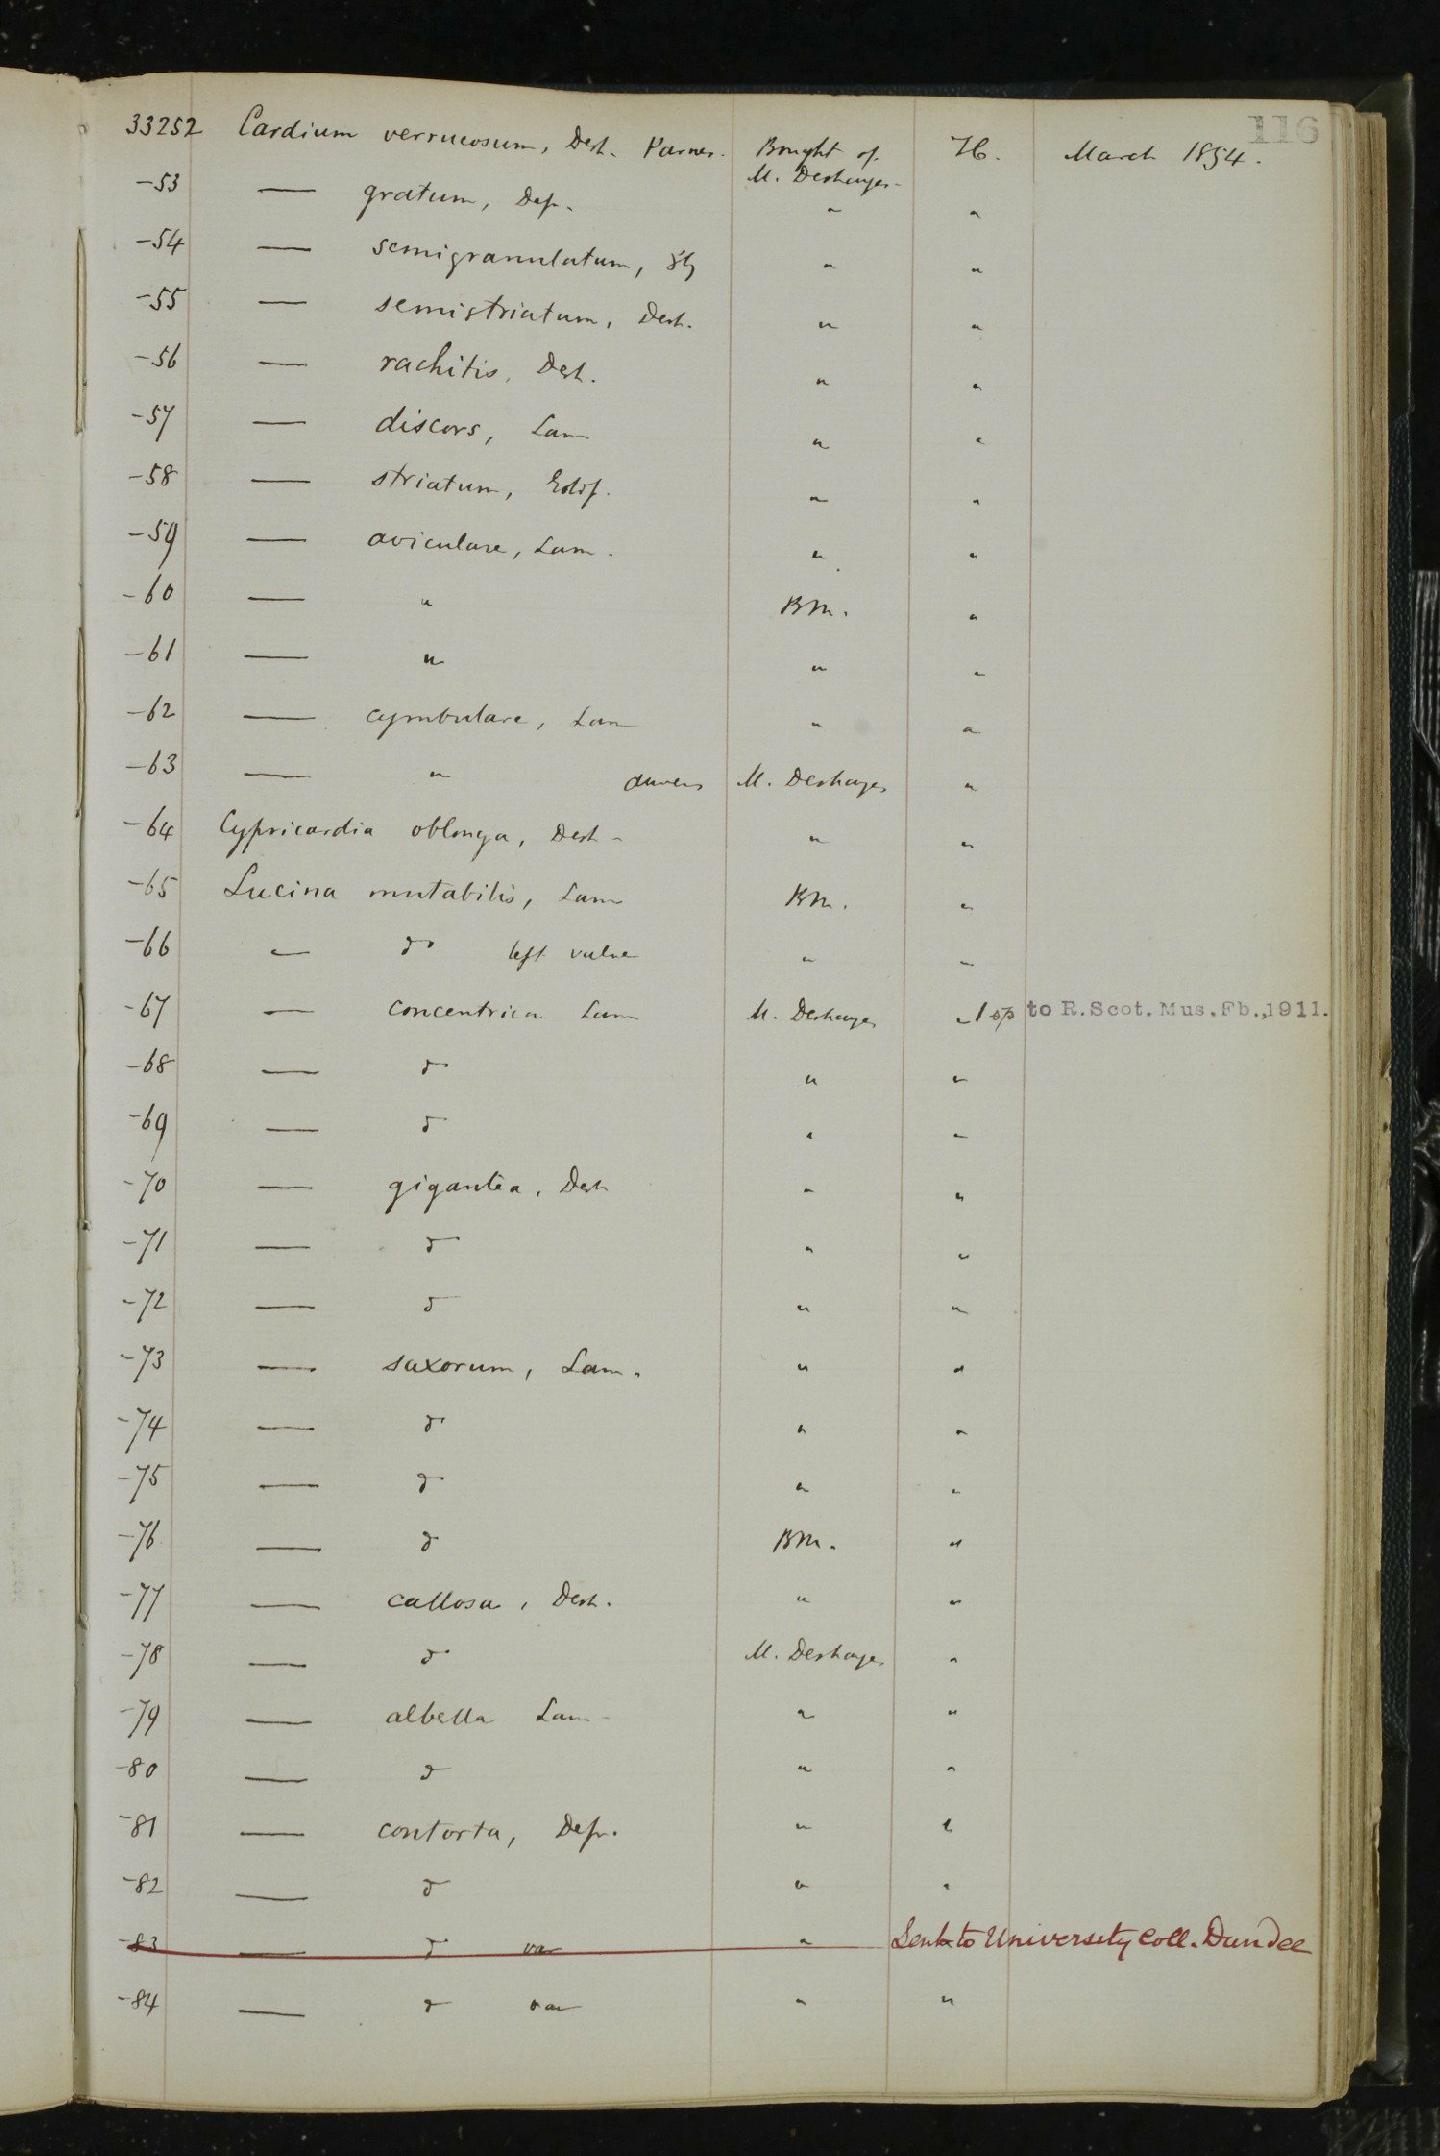 116
33252 Cardium verrucosum, Desh. Parnes. Bought of M. Deshayes - H. March 1854.
-53 — gratum, Def. " "
-54 — semigranulatum, " "
-55 — semistriatum, Desh. " "
-56 — rachitis, Desh. " "
-57 — discors, Lam " "
-58 — striatum, " "
-59 — aviculare, Lam. " "
-60 — " BM. "
-61 — " " "
-62 — cymbulare, Lam " "
-63 — " Auvers M. Deshayes "
-64 Cypricardia oblonga, Desh - " "
-65 Lucina mutabilis, Lam BM. "
-66 — do left valve " "
-67 — concentrica Lam M. Deshayes " 1 sp to R.Scot.Mus.Fb.,1911.
-68 — do " "
-69 — do " "
-70 — gigantea, Desh " "
-71 — do " "
-72 — do " "
-73 — saxorum, Lam. " "
-74 — do " "
-75 — do " "
-76 — do BM. "
-77 — callosa, Desh. " "
-78 — do M. Deshayes "
-79 — albella Lam - " "
-80 — do " "
-81 — contorta, Defr. " "
-82 — do " "
-83 — do var " Sent to University Coll. Dundee
-84 — do var " "